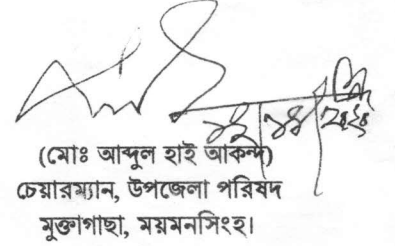 (মোঃ আব্দুল হাই আকন্দ)
চেয়ারম্যান, উপজেলা পরিষদ
মুক্তাগাছা, ময়মনসিংহ।